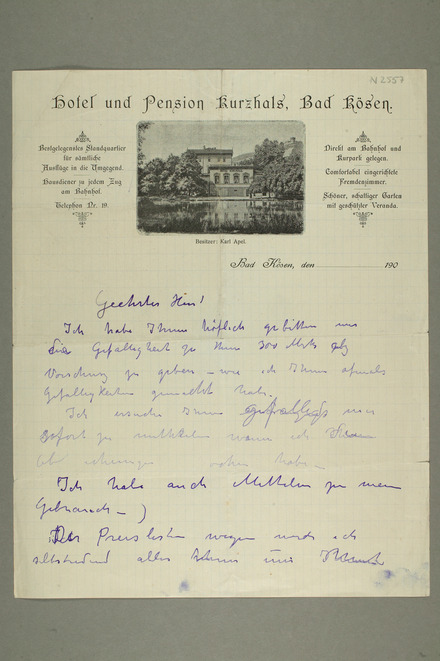 N 2557
Hotel und Pension Kurzhals, Bad Kösen.
Bestgelegenstes Standquartier
für sämtliche
Ausflüge in die Umgegend.
Hausdiener zu jedem Zug
am Bahnhof.
Telephon Nr. 19.
Direkt am Bahnhof und
Kurpark gelegen.
Comfortabel eingerichtete
Fremdenzimmer.
Schöner, schattiger Garten
mit geschützter Veranda.
Besitzer: Karl Apel.
Bad Kösen, den 190
Geehrter Herr!
Ich habe Ihnen höflich gebitten mir
die Gefälligkeit zu thun 300 Mk als
Vorschuss zu geben – wie ich Ihnen oftmals
Gefälligkeiten gemacht habe.
Ich ersuche Ihnen mir
sofort zu mittheilen wann ich
habe –
Ich habe auch Mitteln zu mein
Gebrauch –
Der Preislisten wegen werde ich
alles Ihnen